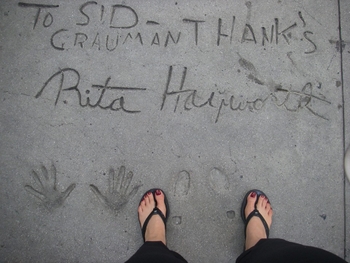 TO SID-
GRAUMAN THANK'S
Rita Hayworth